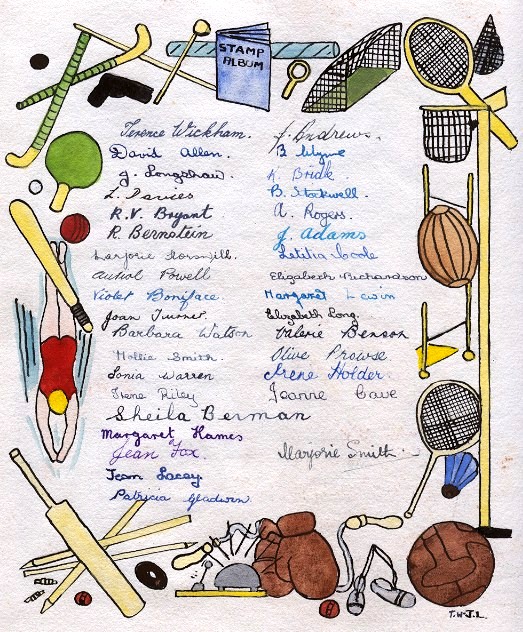 STAMP
ALBUM
Terence Wickham.
David Allen.
J. Longshaw.
L. Davies
R.V. Bryant
R. Bernstein
Marjorie
Powell
Violet Boniface.
Joan Turner.
Barbara Watson
Mollie Smith.
Sonia Warren
Irene Riley
Sheila Berman
Margaret Hames
Jean Fox.
Jean Lacey.
Patricia Gladwin
J. Andrews.
B
K. Bride
B. Stockwell.
A. Rogers.
J. Adams
Letitia Coole
Elizabeth Richardson
Margaret Lewin
Elizabeth Long.
Valerie Benson
Olive Prowse
Irene Holder.
Jeanne Cave
Marjorie Smith.
T.W.J.L.